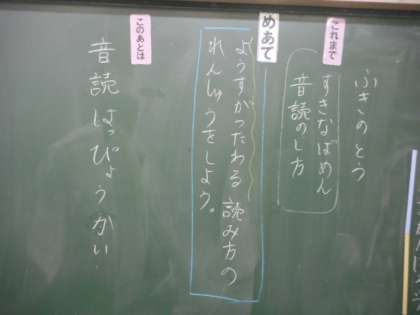 ふきのとう
これまで
すきなばめん
音読のし方
めあて
ようすがつたわる読み方の
れんしゅうをしよう。
このあとは
音読はっぴょうかい.